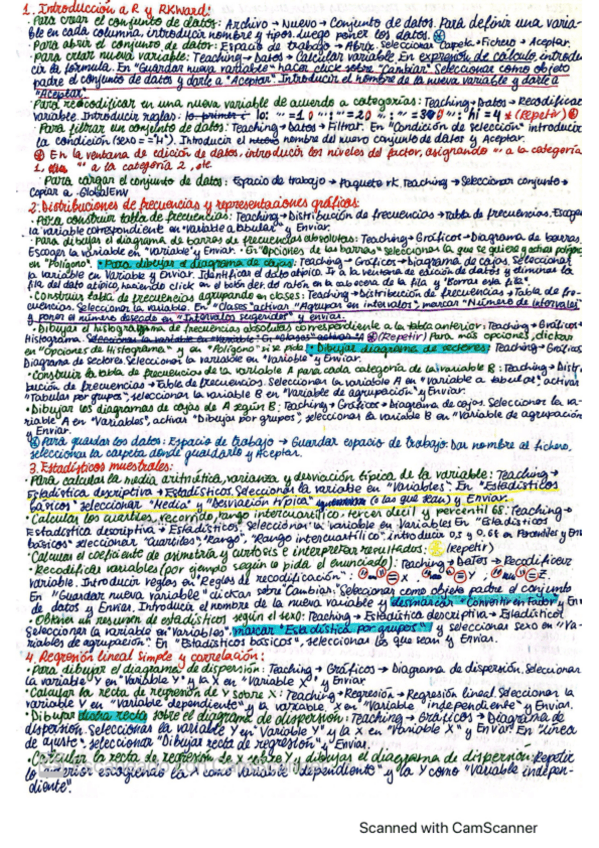 1. Introducción a R y RKWard:
· Para crear el conjunto de datos: Archivo → Nuevo → Conjunto de datos. Para definir una varia-
ble en cada columna, introducir nombre y tipos. Luego poner los datos.
· Para abrir el conjunto de datos: Espacio de trabajo → Abrir. Seleccionar Carpeta → Fichero → Aceptar.
· Para crear nueva variable: Teaching → Datos → Calcular variable. En expresión de cálculo, introdu-
cir la fórmula. En "Guardar nueva variable" hacer click sobre "Cambiar". Seleccionar como objeto
padre el conjunto de datos y darle a "Aceptar". Introducir el nombre de la nueva variable y darle a
"Aceptar".
· Para recodificar en una nueva variable de acuerdo a categorías: Teaching → Datos → Recodificar
variable. Introducir reglas: lo: = 1 = 2 = 3 : hi = 4 * (Repetir)
· Para filtrar un conjunto de datos: Teaching → Datos → Filtrar. En "Condición de selección" introducir
la condición (sexo == "H"). Introducir el nombre del nuevo conjunto de datos y Aceptar.
En la ventana de edición de datos, introducir los niveles del factor, asignando "" a la categoría
1, "" a la categoría 2, etc.
· Para cargar el conjunto de datos: Espacio de trabajo → Paquete rk.Teaching → Seleccionar conjunto →
Copiar a .GlobalEnv
2. Distribuciones de frecuencias y representaciones gráficas:
· Para construir tabla de frecuencias: Teaching → Distribución de frecuencias → Tabla de frecuencias. Escoger
la variable correspondiente en "Variable a tabular" y Enviar.
· Para dibujar el diagrama de barras de frecuencias absolutas: Teaching → Gráficos → Diagrama de barras.
Escoger la variable en "Variable" y Enviar. En "Opciones de las barras" seleccionas la que se quiera y
en "Polígono". · Para dibujar el diagrama de cajas: Teaching → Gráficos → Diagrama de cajas. Seleccionar
la variable en Variable y Enviar. Identificar el dato atípico. Ir a la ventana de edición de datos y eliminar la
fila del dato atípico, haciendo click en el botón der. del ratón en la cabecera de la fila y "Borrar esta fila".
· Construir tabla de frecuencias agrupando en clases: Teaching → Distribución de frecuencias → Tabla de fre-
cuencias. Seleccionar la variable. En "Clases" activar "Agrupar en intervalos", marcar "Número de intervalos"
y poner el número deseado en "Intervalos sugeridos" y enviar.
· Dibujar el histograma de frecuencias absolutas correspondiente a la tabla anterior: Teaching → Gráficos →
Histograma. (Repetir) Para más opciones, clickar
en "Opciones de Histograma" y en "Polígono" si se pide. · Dibujar diagrama de sectores: Teaching → Gráficos
Diagrama de sectores. Seleccionar la variable en "Variable" y Enviar.
· Construir la tabla de frecuencias de la variable A para cada categoría de la variable B: Teaching → Distri-
bución de frecuencias → Tabla de frecuencias. Seleccionar la variable A en "Variable a tabular", activar
"Tabular por grupos", seleccionar la variable B en "Variable de agrupación" y Enviar.
· Dibujar los diagramas de cajas de A según B: Teaching → Gráficos → Diagrama de cajas. Seleccionar la va-
riable A en "Variables", activar "Dibujar por grupos", seleccionar la variable B en "Variable de agrupación
y Enviar.
Para guardar los datos: Espacio de trabajo → Guardar espacio de trabajo. Dar nombre al fichero,
seleccionar la carpeta donde guardarlo y Aceptar.
3. Estadísticos muestrales:
· Para calcular la media aritmética, varianza y desviación típica de la variable: Teaching →
Estadística descriptiva → Estadísticos. Seleccionar la variable en "Variables". En "Estadísticos
básicos" seleccionar "Media" y "Desviación típica" (o las que sean) y Enviar.
· Calcular los cuartiles, recorrido, rango intercuartílico, tercer decil y percentil 68: Teaching →
Estadística descriptiva → Estadísticos, seleccionar la variable en Variables. En "Estadísticos
básicos" seleccionar "Cuartiles", "Rango", "Rango intercuartílico", introducir 0,3 y 0,68 en Percentiles y Env
· Calcular el coeficiente de asimetría y curtosis e interpretar resultados: (Repetir)
· Recodificar variables (por ejemplo según lo pida el enunciado): Teaching → Datos → Recodificar
variable. Introducir reglas en "Reglas de recodificación":
En "Guardar nueva variable" clickar sobre Cambiar. Seleccionar como objeto padre el conjunto
de datos y Enviar. Introducir el nombre de la nueva variable y desmarcar "Convertir en Factor" y En
· Obtener un resumen de estadísticos según el sexo: Teaching → Estadística descriptiva → Estadísticos
Seleccionar la variable en "Variables", marcar "Estadística por grupos" y seleccionar sexo en "Va-
riables de agrupación". En "Estadísticos básicos", seleccionar los que sean y Enviar.
4. Regresión lineal simple y correlación:
· Para dibujar el diagrama de dispersión: Teaching → Gráficos → Diagrama de dispersión. Seleccionar
la variable Y en "Variable Y" y la X en "Variable X" y Enviar
· Calcular la recta de regresión de Y sobre X: Teaching → Regresión → Regresión lineal. Seleccionar la
variable Y en "Variable dependiente" y la variable X en "Variable independiente" y Enviar.
· Dibujar dicha recta sobre el diagrama de dispersión: Teaching → Gráficos → Diagrama de
dispersión. Seleccionas la variable Y en "Variable Y" y la X en "Variable X" y Enviar. En "Línea
de ajuste", seleccionar "Dibujar recta de regresión" y "Enviar.
· Calcular la recta de regresión de X sobre Y y dibujar el diagrama de dispersión: Repetir
lo anterior escogiendo la X como "Variable dependiente" y la Y como "Variable indepen-
diente".
Scanned with CamScanner